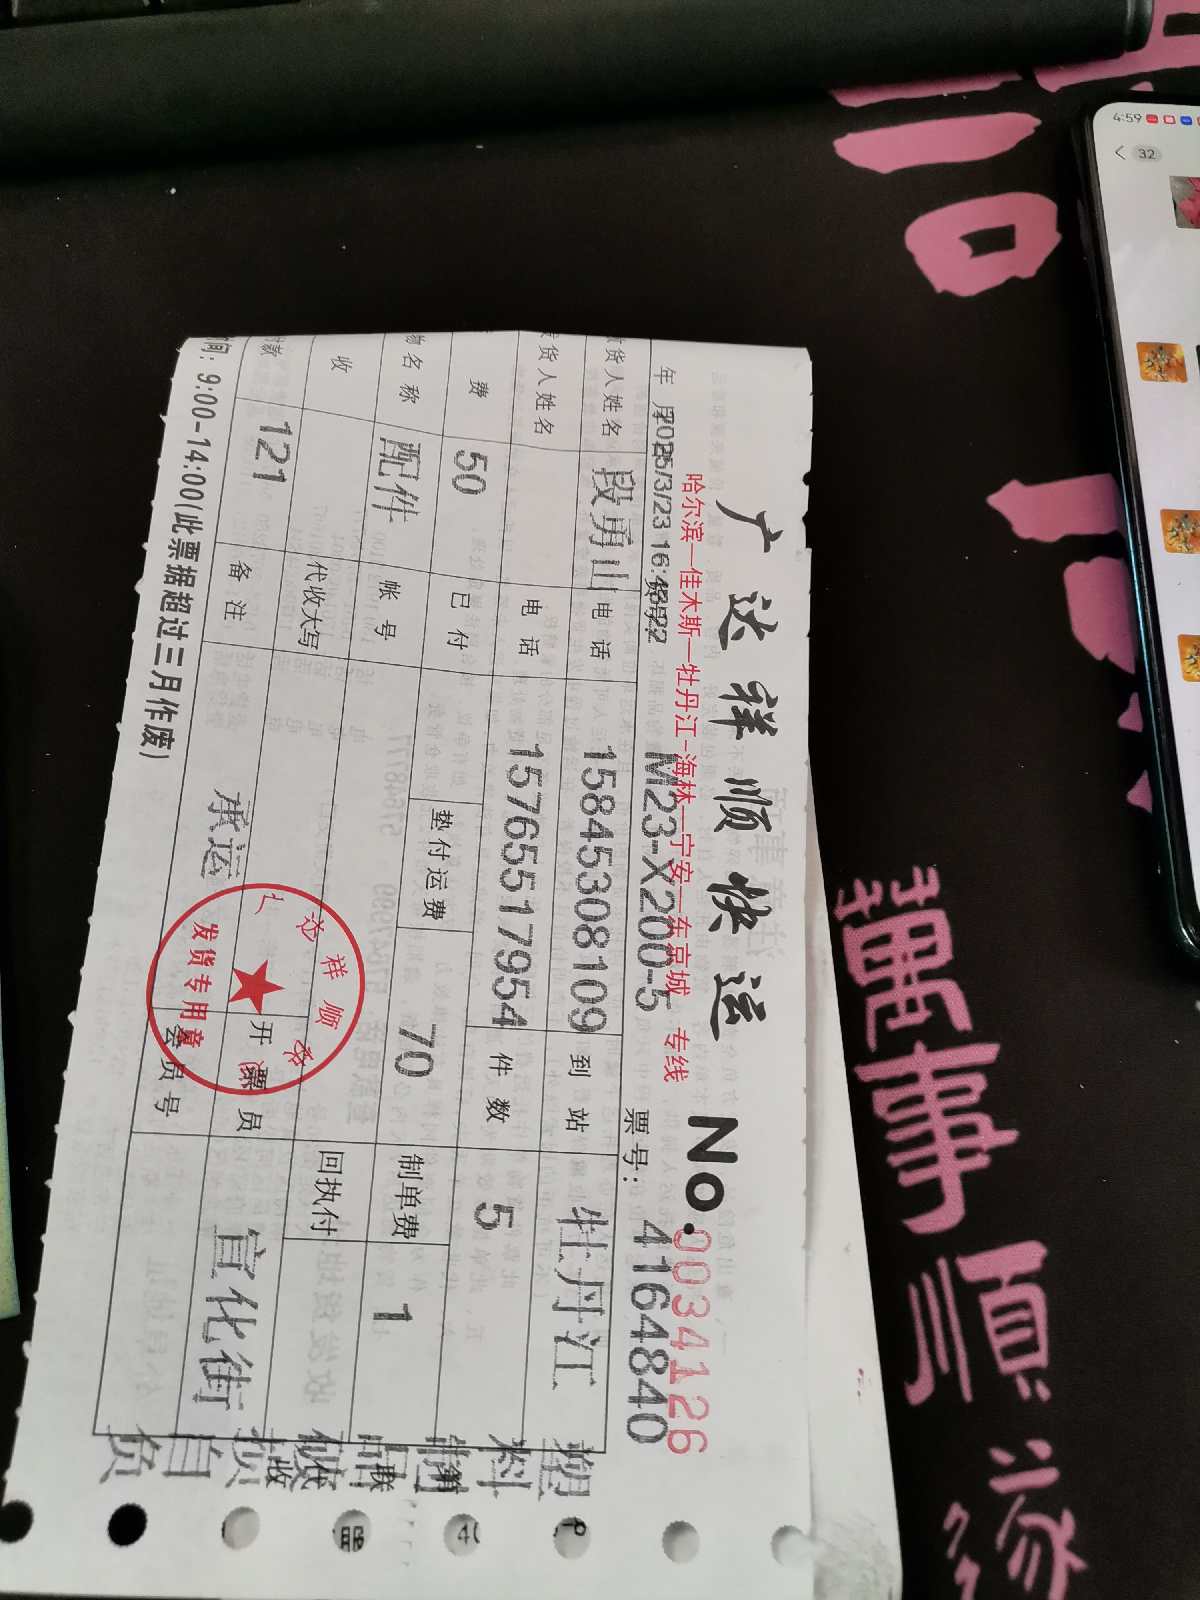 广达祥顺快运 No.0034126
哈尔滨—佳木斯—牡丹江—海林—宁安—东京城 专线
年 月 2025/3/23 16:48:22 货号: M23-X200-5 票号: 4164840
货人姓名 段勇山 电话 15845308109 到站 牡丹江
货人姓名 电话 15765517954 件数 5
费 50 已付 垫付运费 70 制单费 1
物名称 配件 帐号
收 代收大写 回执付
款 121 备注 承运 开票员 宣化街
会员号
间: 9:00-14:00(此票据超过三月作废)
达祥顺
发货专用章
塑料制品破损自负
联
收
4:59
32